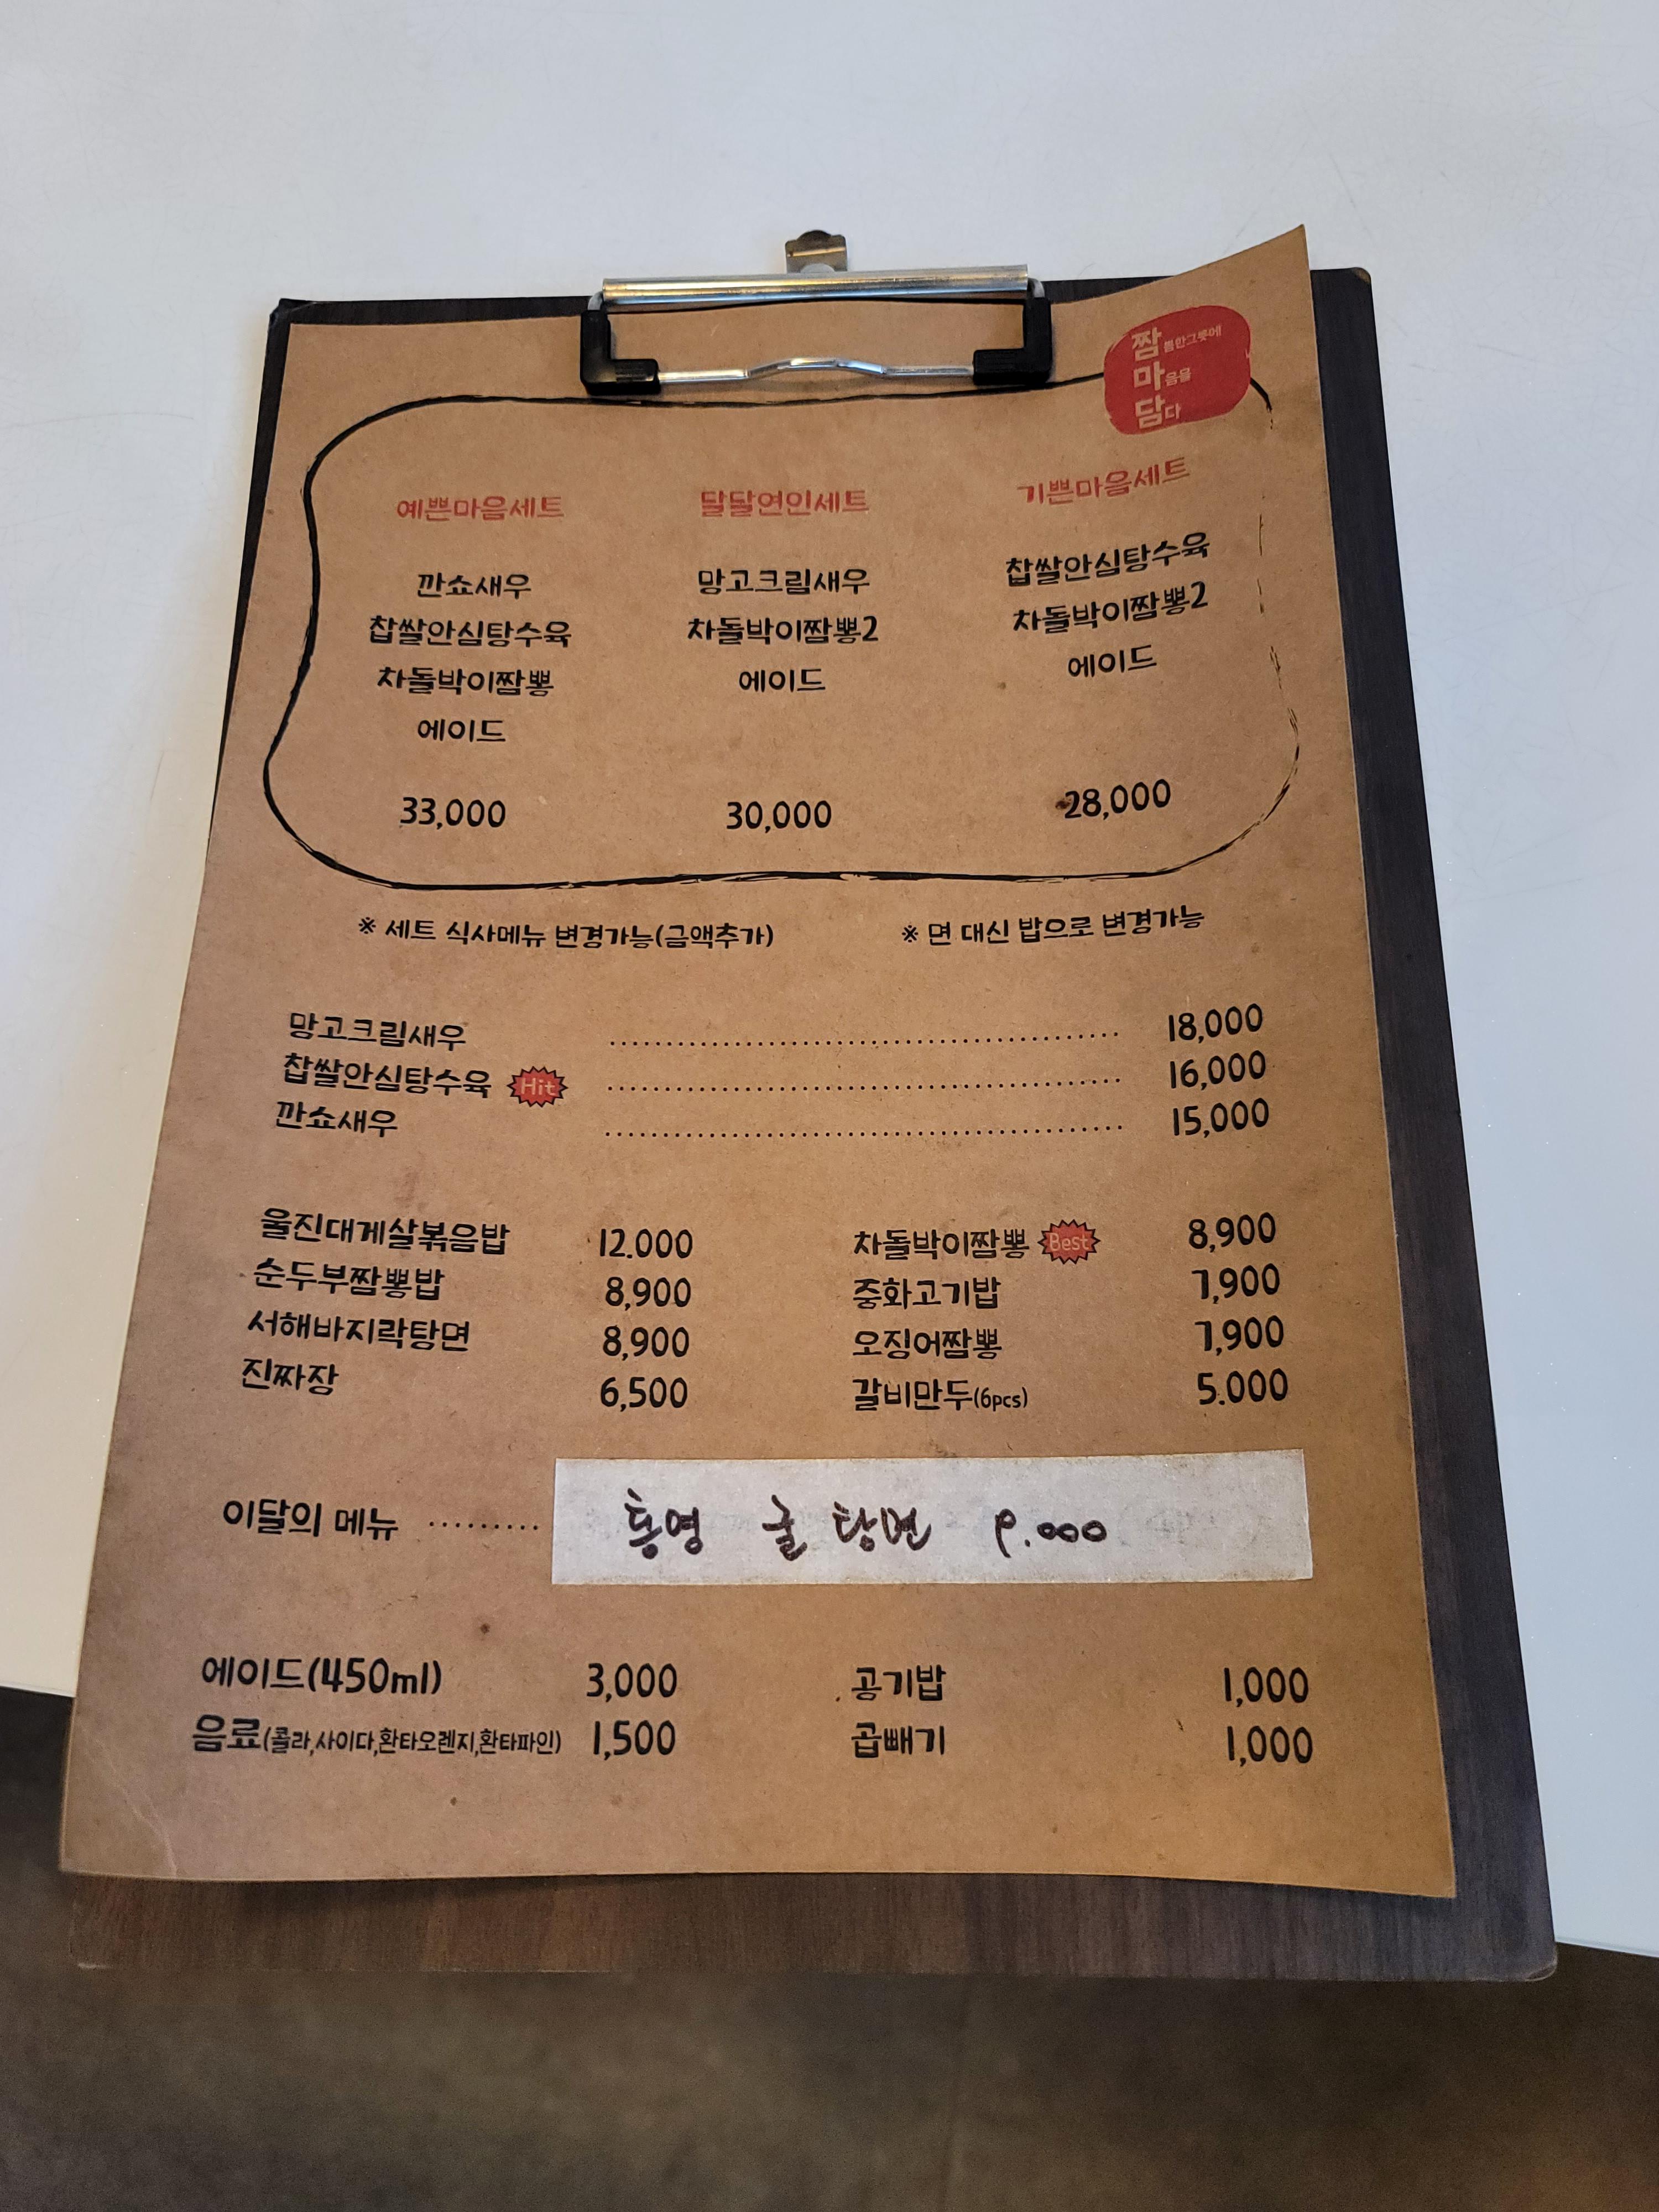 짬뽕한그릇에
마음을
담다
예쁜마음세트
깐쇼새우
찹쌀안심탕수육
차돌박이짬뽕
에이드
33,000
달달연인세트
망고크림새우
차돌박이짬뽕2
에이드
30,000
기쁜마음세트
찹쌀안심탕수육
차돌박이짬뽕2
에이드
28,000
※ 세트 식사메뉴 변경가능(금액추가) ※ 면 대신 밥으로 변경가능
망고크림새우 18,000
찹쌀안심탕수육 Hit 16,000
깐쇼새우 15,000
울진대게살볶음밥 12.000 차돌박이짬뽕 Best 8,900
순두부짬뽕밥 8,900 중화고기밥 7,900
서해바지락탕면 8,900 오징어짬뽕 7,900
진짜장 6,500 갈비만두(6pcs) 5.000
이달의 메뉴 ......... 통영 굴 탕면 9.000
에이드(450ml) 3,000 공기밥 1,000
음료(콜라,사이다,환타오렌지,환타파인) 1,500 곱빼기 1,000